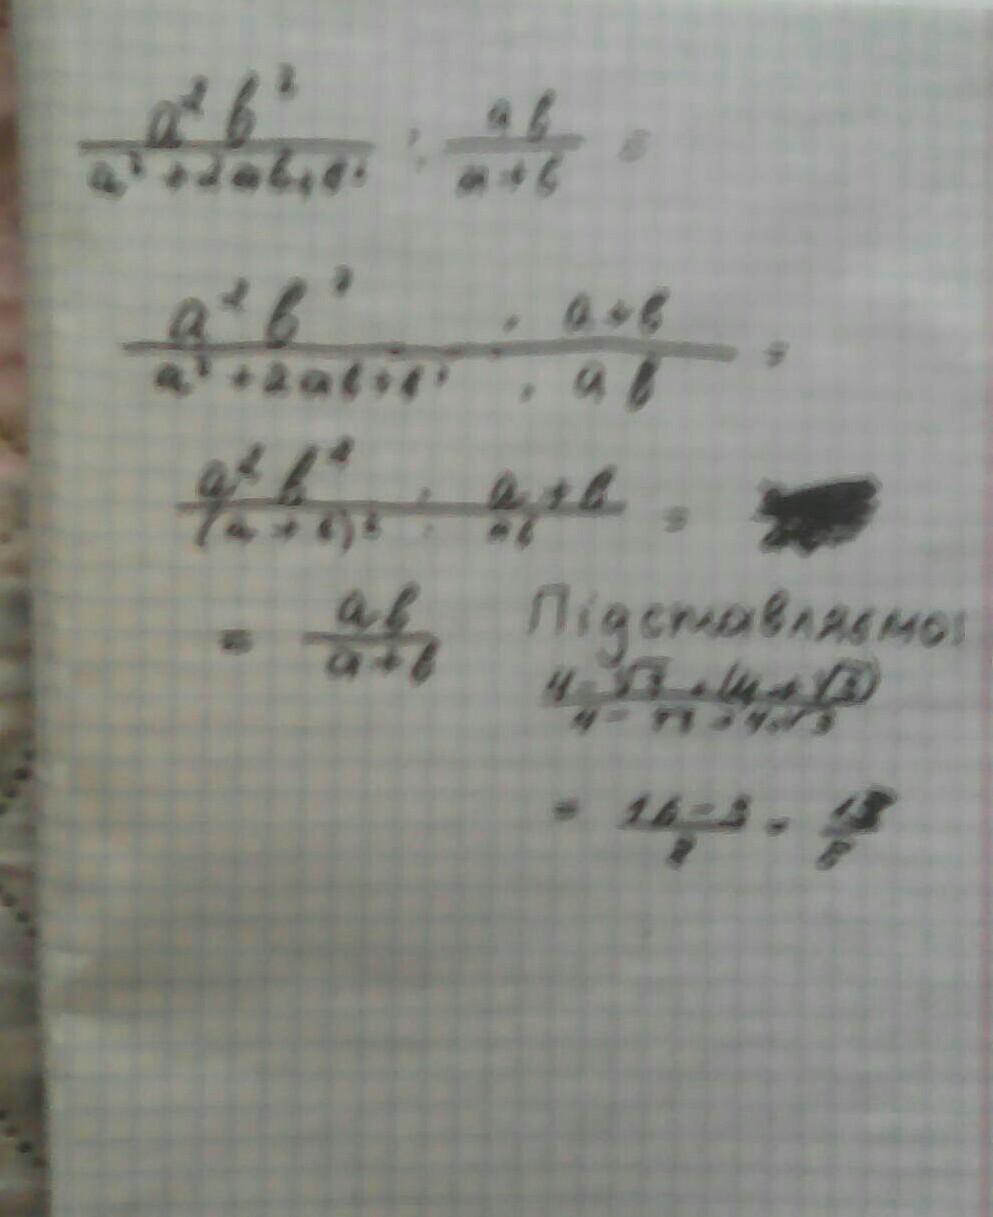 a² b² / a² + 2ab + b² : ab / a + b =
a² b² · a + b / a² + 2ab + b² · ab =
a² b² · a + b / (a + b)² · ab =
= ab / a + b Підставляємо:
4 - √3 · (4 + √3) / 4 - √3 + 4 + √3
= 16 - 3 / 8 = 13 / 8